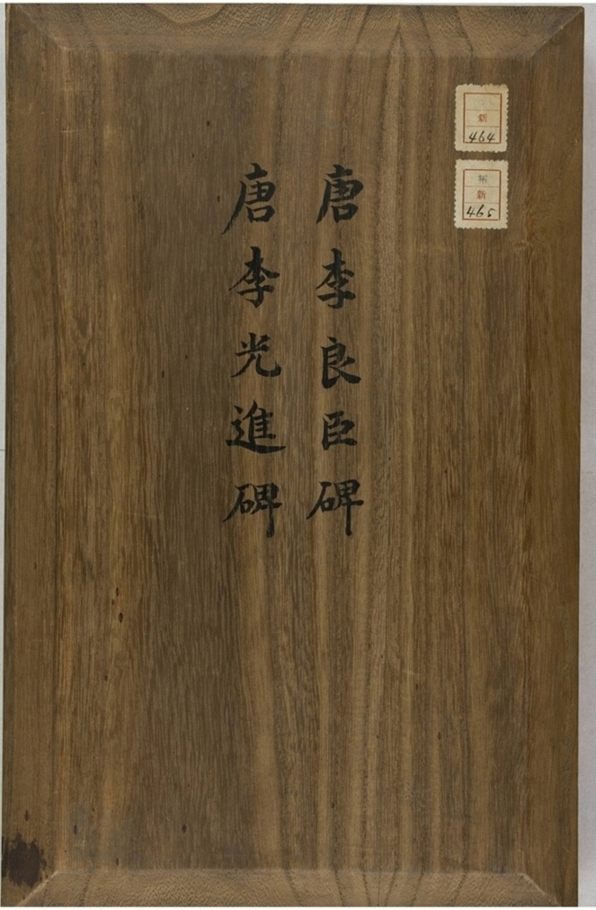 唐李良臣碑
唐李光進碑
新
464
新
465